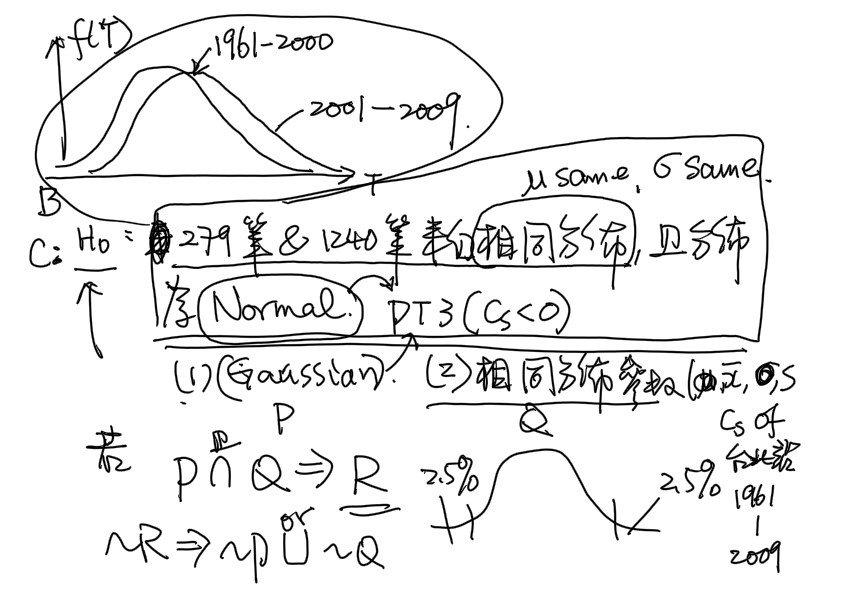 f(T)
1961-2000
2001-2009
T
B
μ same, σ same.
C: H0: 279筆 & 1240筆 相同分佈, 且分佈
Normal. PT3 (Cs<0)
(1) (Gaussian). (2) 相同分佈參數 (x̄, S
P
Q
Cs of
台北站
1961
|
2009
若
P∩Q⇒R
2.5%
2.5%
or
~R⇒~P∪~Q